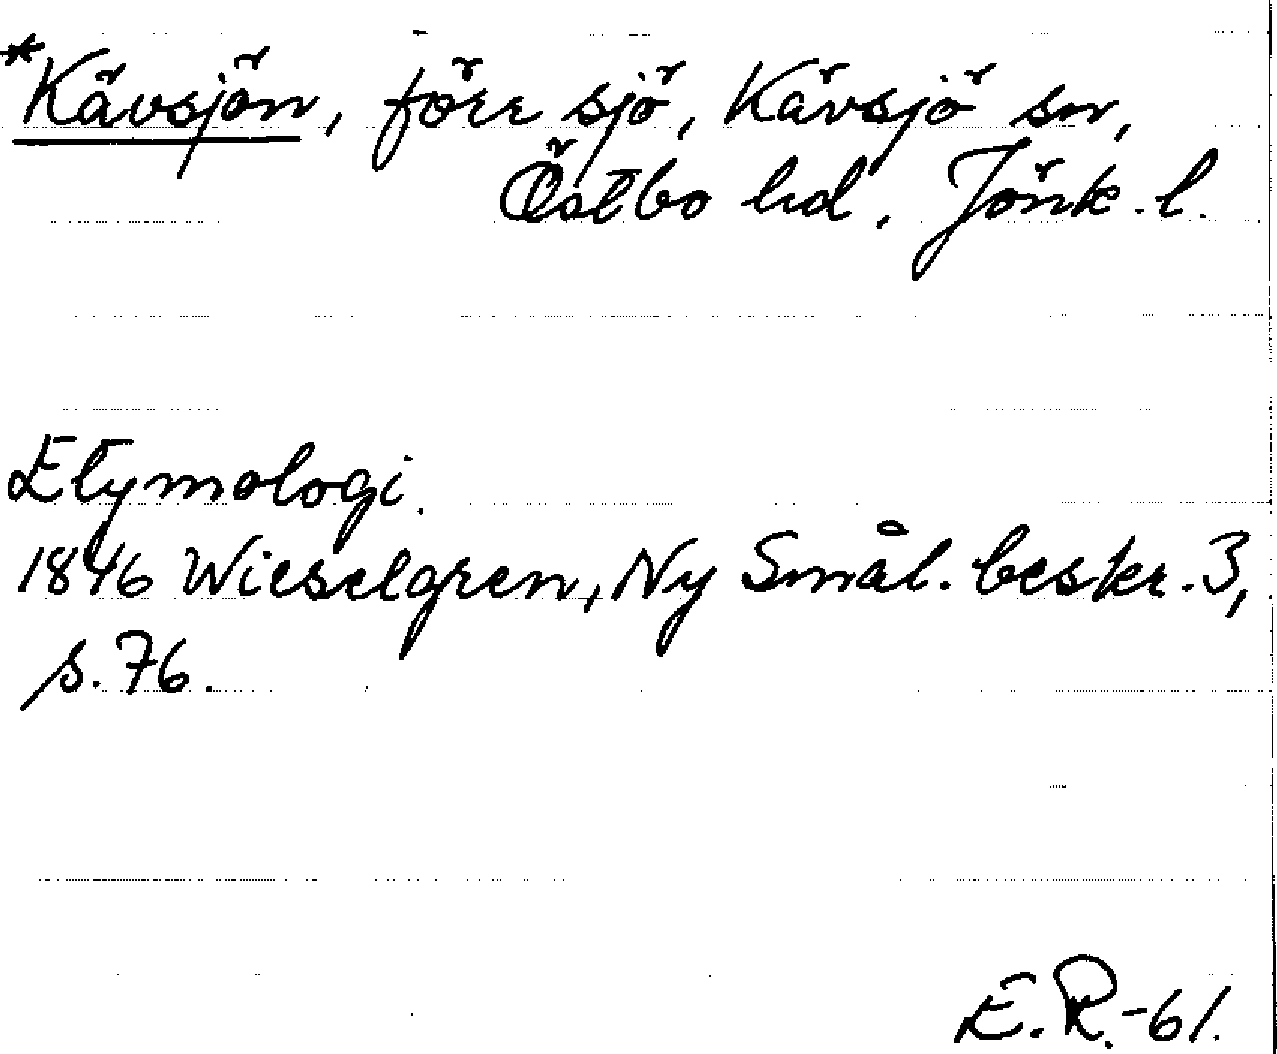 *Kävsjön, förr sjö, Kävsjö sn,
Östbo hd, Jönk. l.
Etymologi.
1846 Wieselgren, Ny Smål. beskr. 3,
s. 76.
E.R.-61.